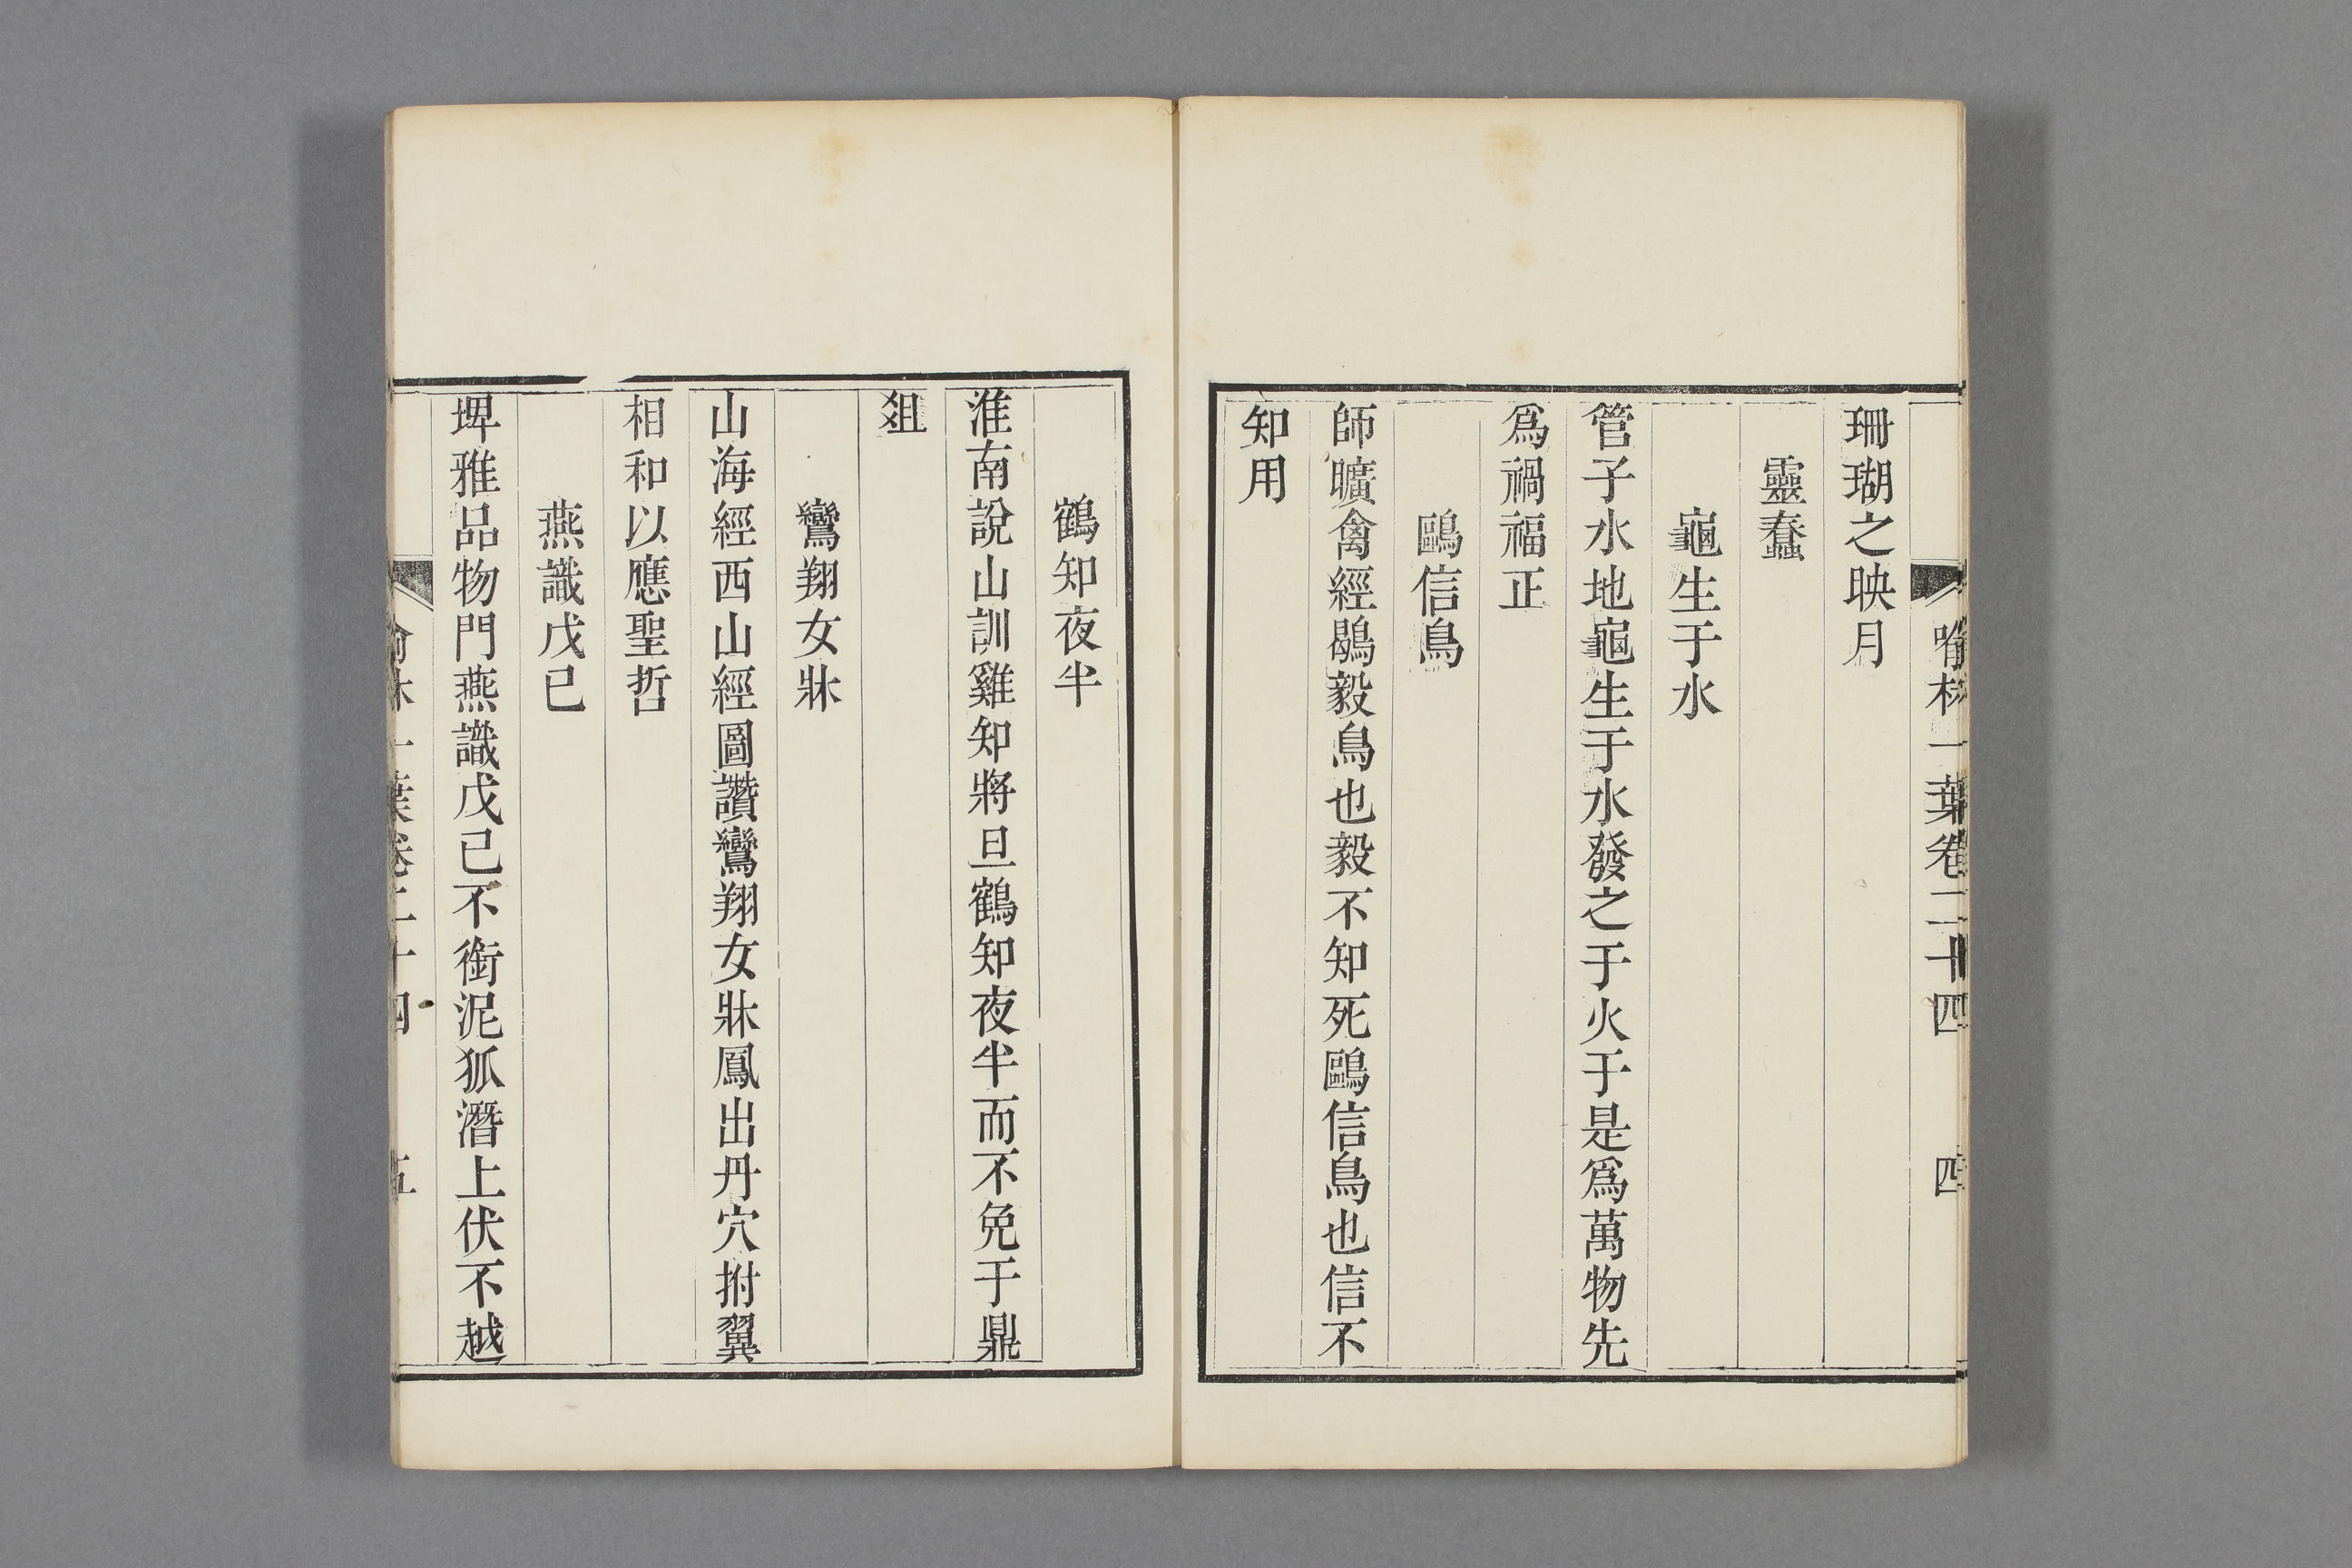 喻林一葉卷二十四 四
珊瑚之映月
靈蠢
龜生于水
管子水地龜生于水發之于火于是爲萬物先
爲禍福正
鷗信鳥
師曠禽經鶡毅鳥也毅不知死鷗信鳥也信不
知用
鶴知夜半
淮南說山訓雞知將旦鶴知夜半而不免于鼎
俎
鸞翔女牀
山海經西山經圖讚鸞翔女牀鳳出丹穴拊翼
相和以應聖哲
燕識戊己
埤雅品物門燕識戊己不銜泥狐潛上伏不越
喻林一葉卷二十四 五